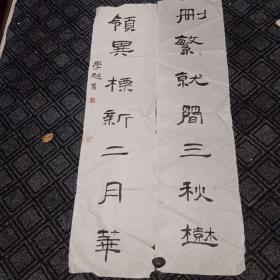 删繁就簡三秋樹
領異標新二月華
學超書